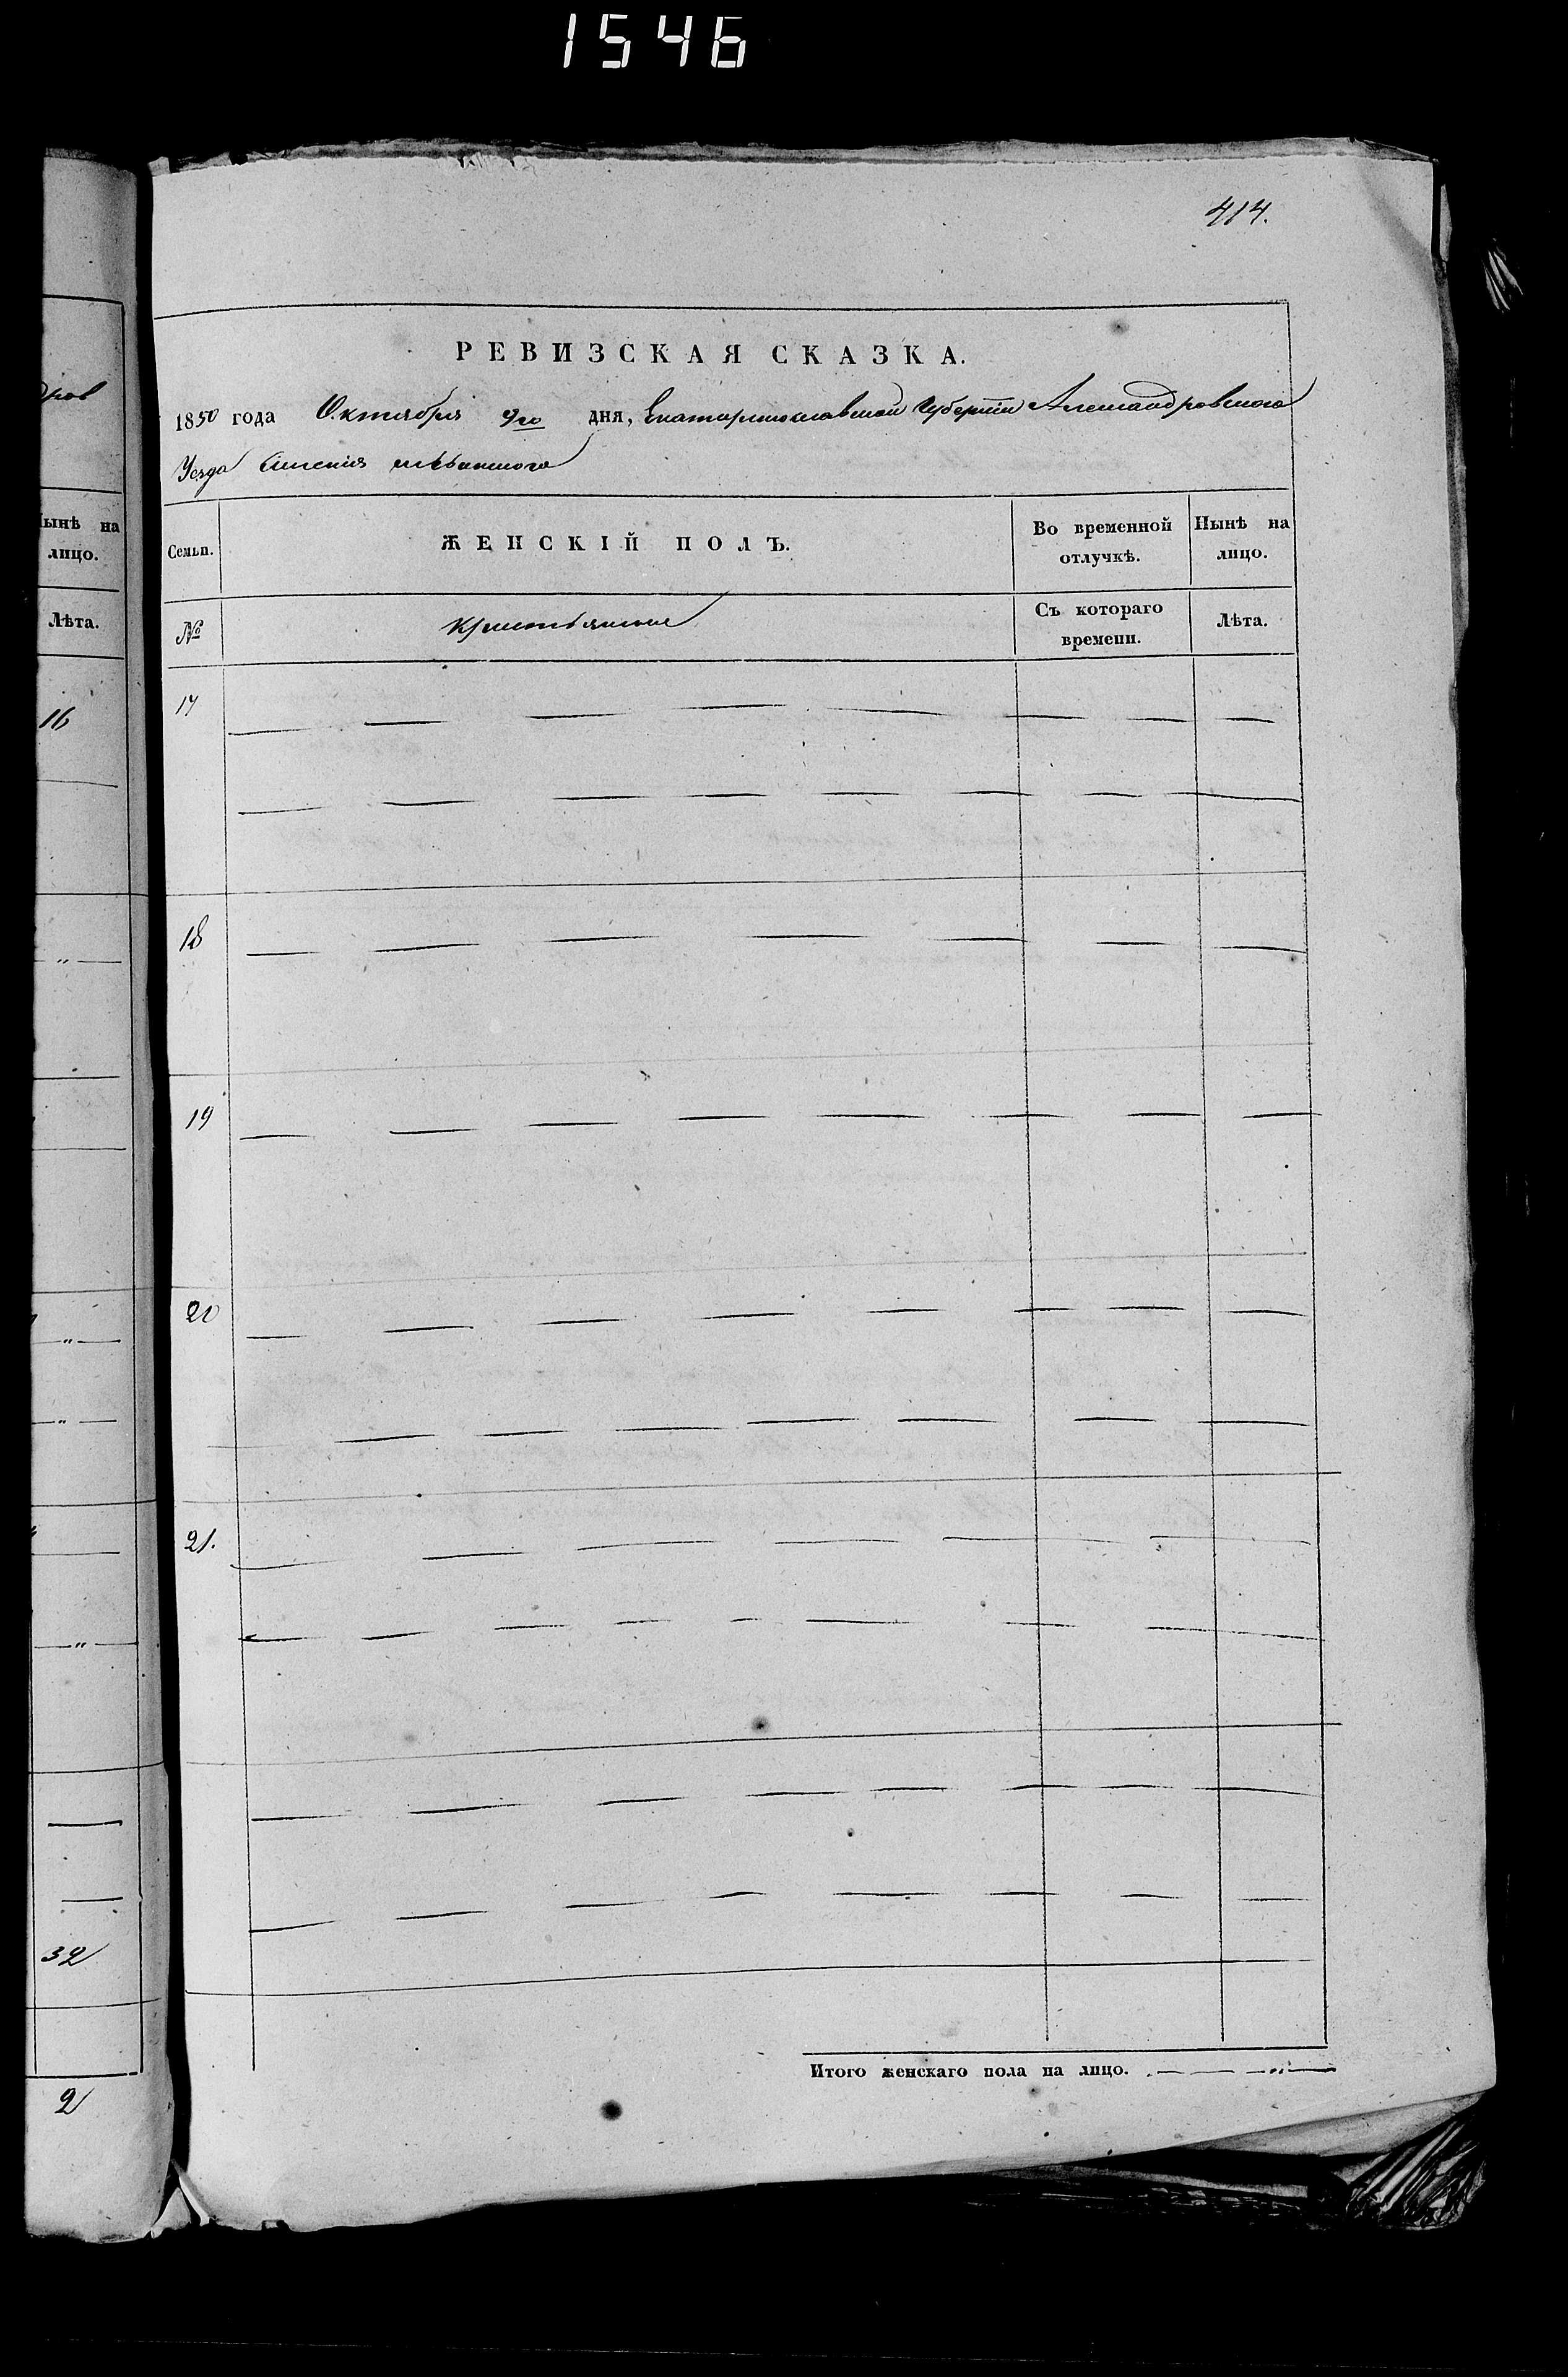 1546
414.
РЕВИЗСКАЯ СКАЗКА.
1850 года Октября 9го дня, Екатеринославской Губернiи Александровского
Уезда имения
Семьи. ЖЕНСКIЙ ПОЛЪ. Во временной отлучкѣ. Нынѣ на лицо.
№ Крестьяне Съ котораго времени. Лѣта.
17
18
19
20
21.
Итого женскаго пола на лицо. — — — " —
дров
Нынѣ на
лицо.
Лѣта.
16
"
"
"
"
32
2